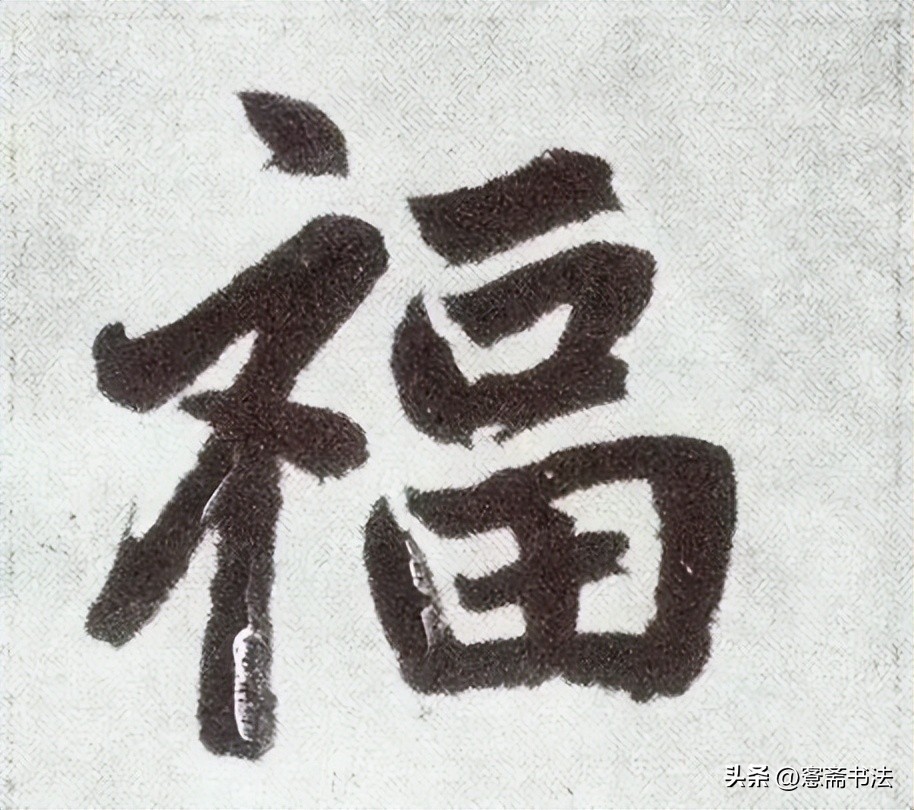 福
头条 @蹇斋书法